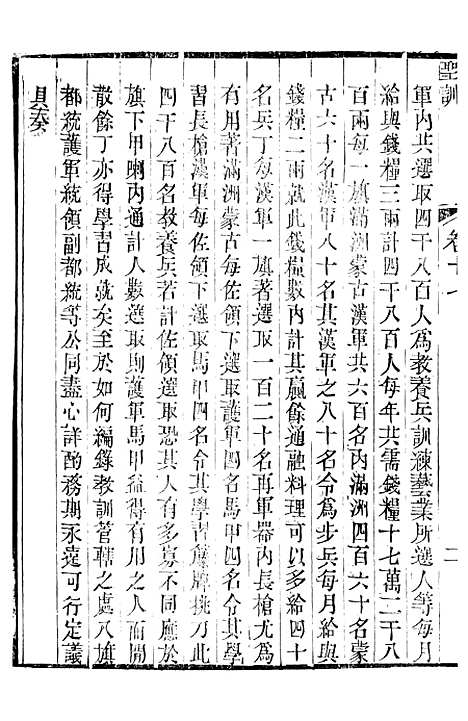 聖訓
卷十七
二
軍內共選取四千八百人為教養兵訓練藝業所選人等每月
給與錢糧三兩計四千八百人每年共需錢糧十七萬二千八
百兩每一旗滿洲蒙古漢軍共六百名內滿洲四百六十名蒙
古六十名漢軍八十名漢軍之八十名令為步兵每月給
錢糧二兩就此錢糧數內計其贏餘通融料理可以多給四十
名兵丁每漢軍一旗著選取一百二十名再軍器內長槍尤為
有用著滿洲蒙古每佐領下選取護軍二名馬甲四名其學
習長槍漢軍每佐領下選取馬甲四名令其學習籐牌挑刀此
四千八百名教養兵若計佐領選取恐其人有多寡不同應於
旗下甲喇內通計人數選取則護軍馬甲益得有用之人而閒
散餘丁亦得學習成就矣至於如何編錄教訓管轄之處八旗
都統護軍統領副都統等公同盡心詳酌務期永遠可行定議
具奏